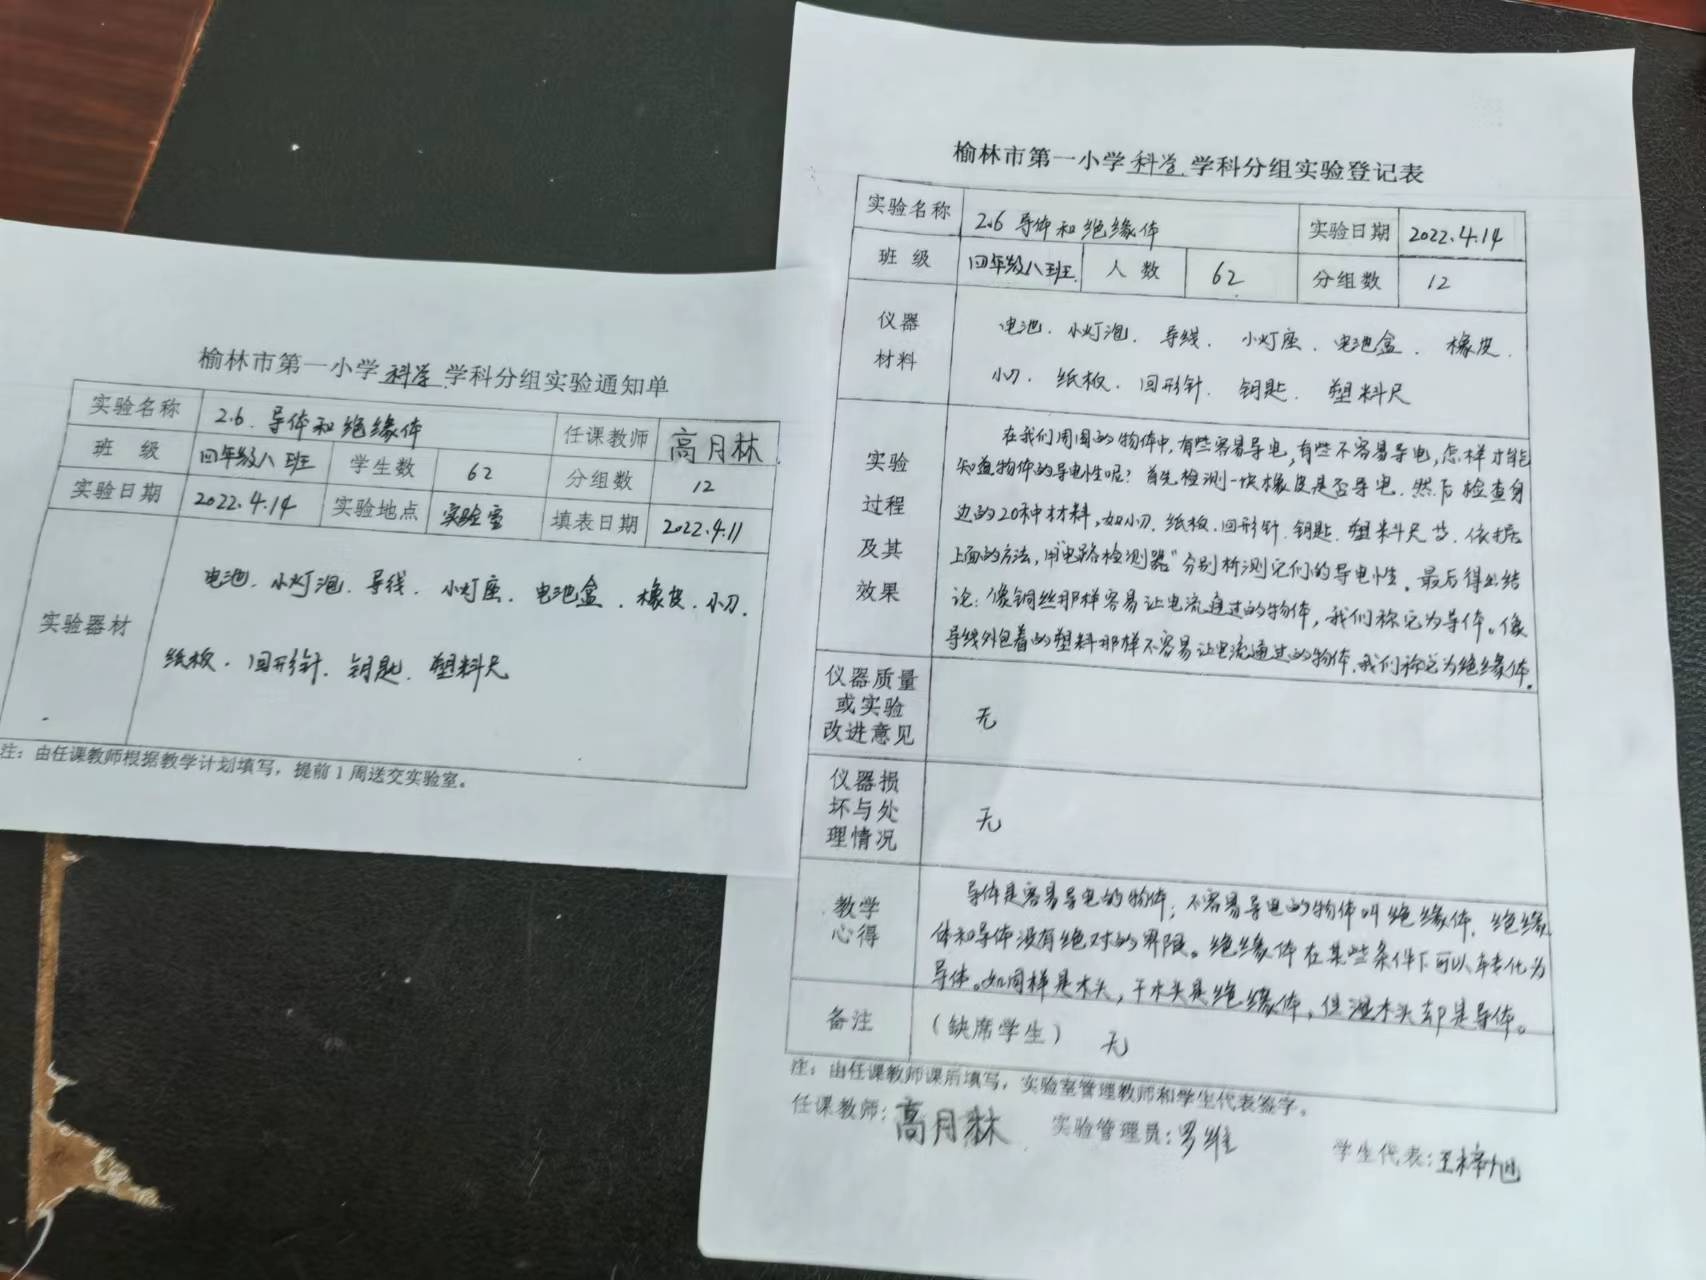 榆林市第一小学科学学科分组实验通知单
实验名称 2.6.导体和绝缘体 任课教师 高月林
班 级 四年级八班 学生数 62 分组数 12
实验日期 2022.4.14 实验地点 实验室 填表日期 2022.4.11
实验器材
电池.小灯泡.导线.小灯座.电池盒.橡皮.小刀.
纸板.回形针.钥匙.塑料尺
注：由任课教师根据教学计划填写，提前1周送交实验室。
榆林市第一小学科学学科分组实验登记表
实验名称 2.6 导体和绝缘体 实验日期 2022.4.14
班 级 四年级八班 人 数 62 分组数 12
仪器
材料
电池.小灯泡.导线.小灯座.电池盒.橡皮.
小刀.纸板.回形针.钥匙.塑料尺
实验
过程
及其
效果
在我们周围的物体中,有些容易导电,有些不容易导电,怎样才能
知道物体的导电性呢?首先检测一块橡皮是否导电.然后检查身
边的20种材料,如小刀.纸板.回形针.钥匙.塑料尺等.依据
上面的方法,用“电路检测器”分别析测它们的导电性.最后得出结
论:像铜丝那样容易让电流通过的物体,我们称它为导体。像
导线外包着的塑料那样不容易让电流通过的物体,我们称它为绝缘体.
仪器质量
或实验
改进意见
无
仪器损
坏与处
理情况
无
教学
心得
导体是容易导电的物体;不容易导电的物体叫绝缘体.绝缘
体和导体没有绝对的界限。绝缘体在某些条件下可以转化为
导体。如同样是木头,干木头是绝缘体,但湿木头却是导体。
备注
（缺席学生） 无
注：由任课教师课后填写，实验室管理教师和学生代表签字。
任课教师:高月林 实验管理员:罗维 学生代表:王梓旭